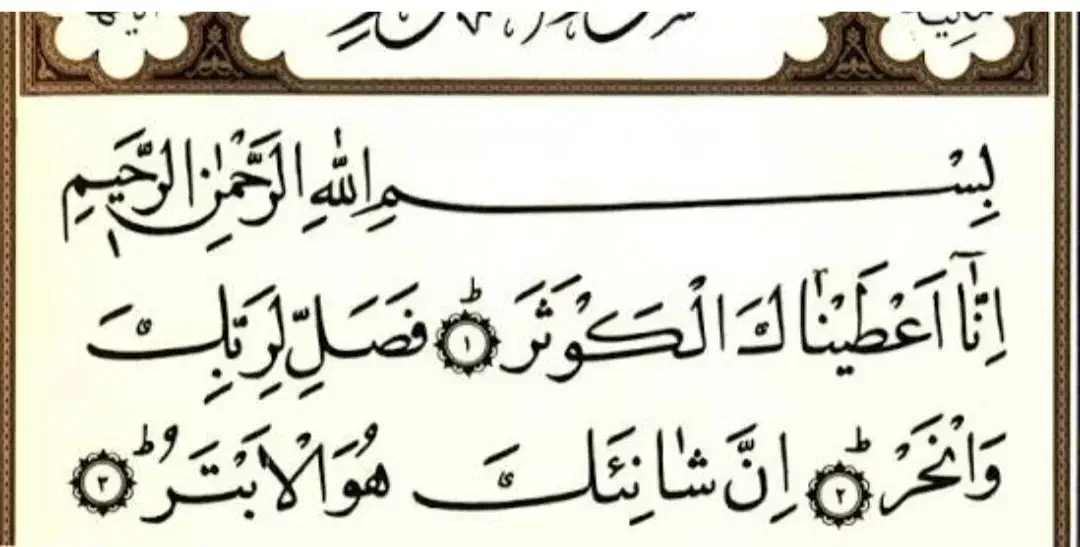 بِسْمِ اللّٰهِ الرَّحْمٰنِ الرَّحِيْمِ
اِنَّاۤ اَعْطَيْنٰكَ الْكَوْثَرَ ؕ ﴿١﴾ فَصَلِّ لِرَبِّكَ
وَانْحَرْ ؕ ﴿٢﴾ اِنَّ شَانِئَكَ هُوَ الْاَبْتَرُ ؕ ﴿٣﴾